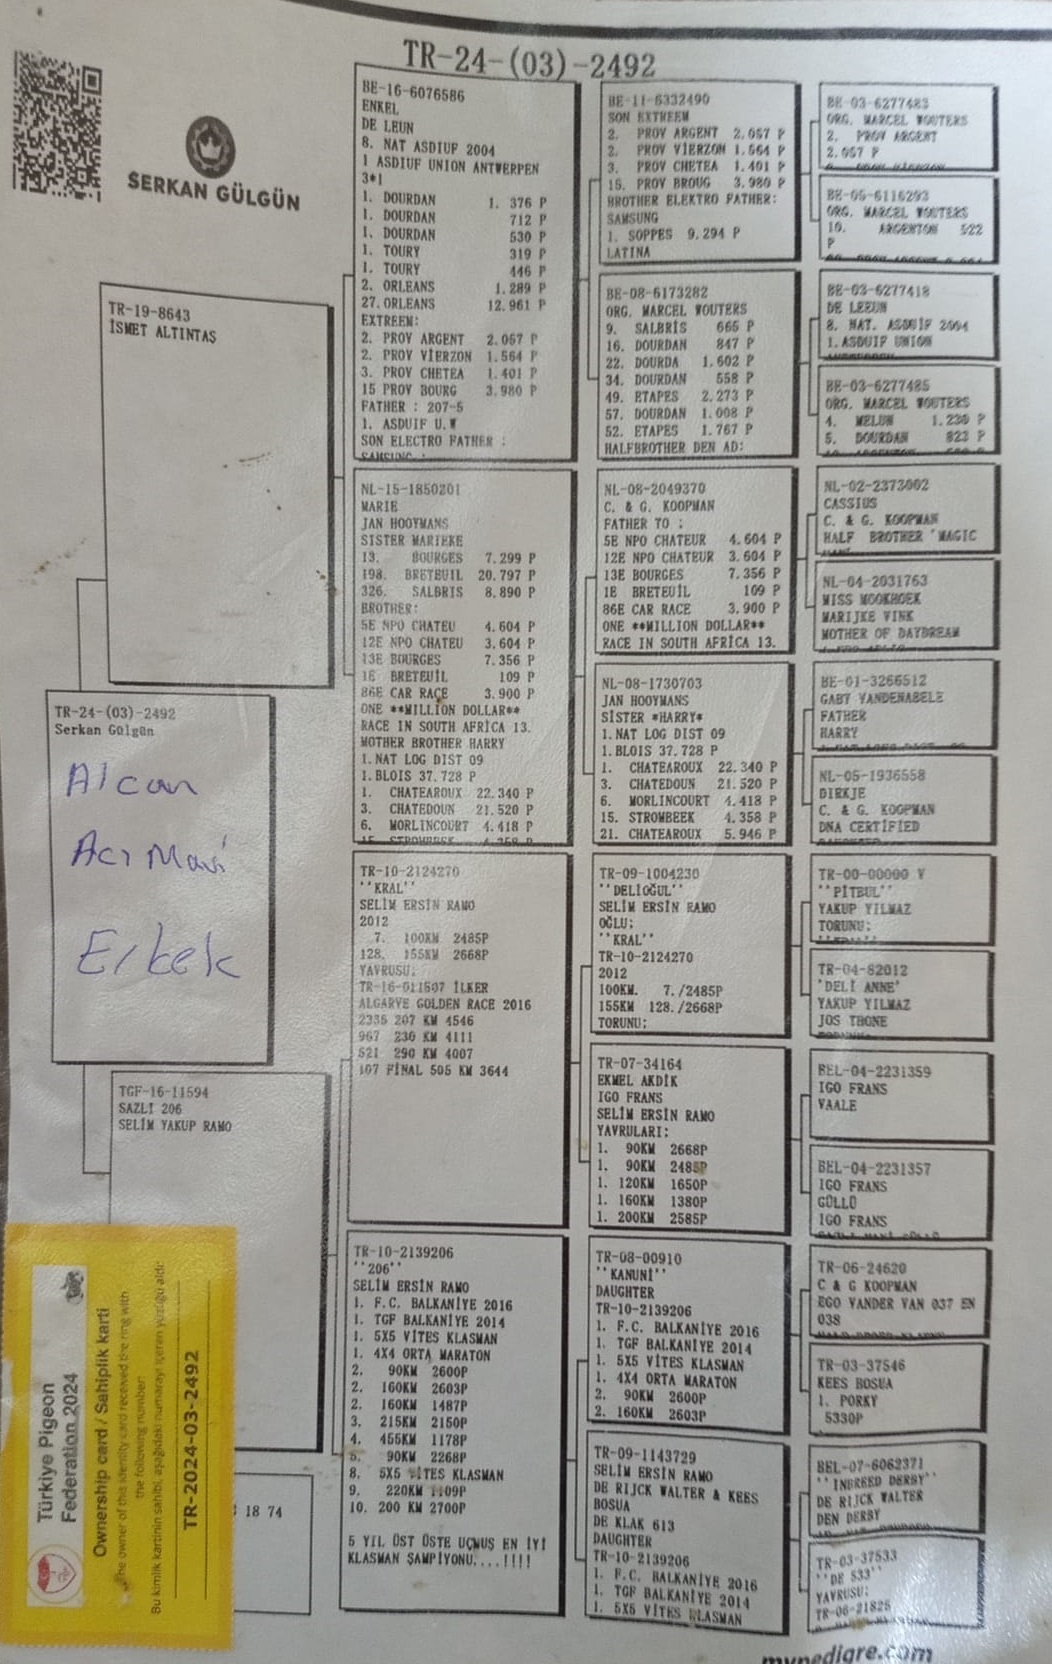 TR-24-(03)-2492
SERKAN GÜLGÜN
TR-19-8643
İSMET ALTINTAŞ
TR-24-(03)-2492
Serkan Gülgün
Alcan
Acı Mavi
Erkek
TGF-16-11594
SAZLI 206
SELİM YAKUP RAMO
18 74
BE-16-6076586
ENKEL
DE LEUN
8. NAT ASDIUF 2004
1 ASDIUF UNION ANTWERPEN
3*1
1. DOURDAN 1. 376 P
1. DOURDAN 712 P
1. DOURDAN 530 P
1. TOURY 319 P
1. TOURY 446 P
2. ORLEANS 1.289 P
27. ORLEANS 12.961 P
EXTREEM:
2. PROV ARGENT 2.057 P
2. PROV VİERZON 1.564 P
3. PROV CHETEA 1.401 P
15 PROV BOURG 3.980 P
FATHER : 207-5
1. ASDUIF U.W
SON ELECTRO FATHER :
SAMSUNG :
NL-15-1850201
MARIE
JAN HOOYMANS
SISTER MARIEKE
13. BOURGES 7.299 P
198. BRETEUIL 20.797 P
326. SALBRIS 8.890 P
BROTHER:
5E NPO CHATEU 4.604 P
12E NPO CHATEU 3.604 P
13E BOURGES 7.356 P
1E BRETEUİL 109 P
86E CAR RACE 3.900 P
ONE **MILLION DOLLAR**
RACE IN SOUTH AFRİCA 13.
MOTHER BROTHER HARRY
1.NAT LOG DIST 09
1.BLOIS 37.728 P
1. CHATEAROUX 22.340 P
3. CHATEDOUN 21.520 P
6. MORLINCOURT 4.418 P
TR-10-2124270
''KRAL''
SELİM ERSİN RAMO
2012
7. 100KM 2485P
128. 155KM 2668P
YAVRUSU:
TR-16-011507 İLKER
ALGARVE GOLDEN RACE 2016
2335 207 KM 4546
967 230 KM 4111
521 290 KM 4007
107 FİNAL 505 KM 3644
TR-10-2139206
''206''
SELİM ERSİN RAMO
1. F.C. BALKANİYE 2016
1. TGF BALKANİYE 2014
1. 5X5 VİTES KLASMAN
1. 4X4 ORTA MARATON
2. 90KM 2600P
2. 160KM 2603P
2. 160KM 1487P
3. 215KM 2150P
4. 455KM 1178P
5. 90KM 2268P
8. 5X5 VİTES KLASMAN
9. 220KM 1109P
10. 200 KM 2700P
5 YIL ÜST ÜSTE UÇMUŞ EN İYİ
KLASMAN ŞAMPİYONU....!!!!
BE-11-6332490
SON EXTREEM
2. PROV ARGENT 2.057 P
2. PROV VİERZON 1.564 P
3. PROV CHETEA 1.401 P
15. PROV BROUG 3.980 P
BROTHER ELEKTRO FATHER:
SAMSUNG
1. SOPPES 9.294 P
LATINA
BE-08-6173282
ORG. MARCEL WOUTERS
9. SALBRİS 665 P
16. DOURDAN 847 P
22. DOURDA 1.602 P
34. DOURDAN 558 P
49. ETAPES 2.273 P
57. DOURDAN 1.008 P
52. ETAPES 1.767 P
HALFBROTHER DEN AD:
NL-08-2049370
C. & G. KOOPMAN
FATHER TO :
5E NPO CHATEUR 4.604 P
12E NPO CHATEUR 3.604 P
13E BOURGES 7.356 P
1E BRETEUİL 109 P
86E CAR RACE 3.900 P
ONE **MİLLION DOLLAR**
RACE IN SOUTH AFRİCA 13.
NL-08-1730703
JAN HOOYMANS
SİSTER *HARRY*
1.NAT LOG DIST 09
1.BLOIS 37.728 P
1. CHATEAROUX 22.340 P
3. CHATEDOUN 21.520 P
6. MORLINCOURT 4.418 P
15. STROMBEEK 4.358 P
21. CHATEAROUX 5.946 P
TR-09-1004230
''DELİOĞUL''
SELİM ERSİN RAMO
OĞLU:
''KRAL''
TR-10-2124270
2012
100KM. 7./2485P
155KM 128./2668P
TORUNU:
TR-07-34164
EKMEL AKDİK
IGO FRANS
SELİM ERSİN RAMO
YAVRULARI:
1. 90KM 2668P
1. 90KM 2485P
1. 120KM 1650P
1. 160KM 1380P
1. 200KM 2585P
TR-08-00910
''KANUNİ''
DAUGHTER
TR-10-2139206
1. F.C. BALKANİYE 2016
1. TGF BALKANİYE 2014
1. 5X5 VİTES KLASMAN
1. 4X4 ORTA MARATON
2. 90KM 2600P
2. 160KM 2603P
TR-09-1143729
SELİM ERSİN RAMO
DE RIJCK WALTER & KEES
BOSUA
DE KLAK 613
DAUGHTER
TR-10-2139206
1. F.C. BALKANİYE 2016
1. TGF BALKANİYE 2014
1. 5X5 VİTES KLASMAN
BE-03-6277483
ORG. MARCEL WOUTERS
2. PROV ARGENT
2.057 P
BE-05-6116293
ORG. MARCEL WOUTERS
10. ARGENTON 522
P
BE-03-6277418
DE LEEUN
8. NAT. ASDUIF 2004
1.ASDUIF UNION
BE-03-6277485
ORG. MARCEL WOUTERS
4. MELUN 1.230 P
5. DOURDAN 823 P
NL-02-2373002
CASSIUS
C. & G. KOOPMAN
HALF BROTHER 'MAGIC
NL-04-2031763
MISS MOOKHOEK
MARIJKE VINK
MOTHER OF DAYDREAM
BE-01-3266512
GABY VANDENABELE
FATHER
HARRY
NL-05-1936558
DIRKJE
C. & G. KOOPMAN
DNA CERTİFİED
TR-00-00000 V
''PİTBUL''
YAKUP YILMAZ
TORUNU:
TR-04-82012
'DELİ ANNE'
YAKUP YILMAZ
JOS THONE
BEL-04-2231359
IGO FRANS
VAALE
BEL-04-2231357
IGO FRANS
GÜLLÜ
IGO FRANS
TR-06-24620
C & G KOOPMAN
EGO VANDER VAN 037 EN
038
TR-03-37546
KEES BOSUA
1. PORKY
5330P
BEL-07-6062371
''INBREED DERBY''
DE RIJCK WALTER
DEN DERBY
TR-03-37533
''DE 533''
YAVRUSU:
TR-06-21825
mypedigre.com
Türkiye Pigeon
Federation 2024
Ownership card / Sahiplik karti
The owner of this identity card received the ring with
the following number:
Bu kimlik kartinin sahibi, aşağıdaki numarayı içeren yüzüğü aldı:
TR-2024-03-2492